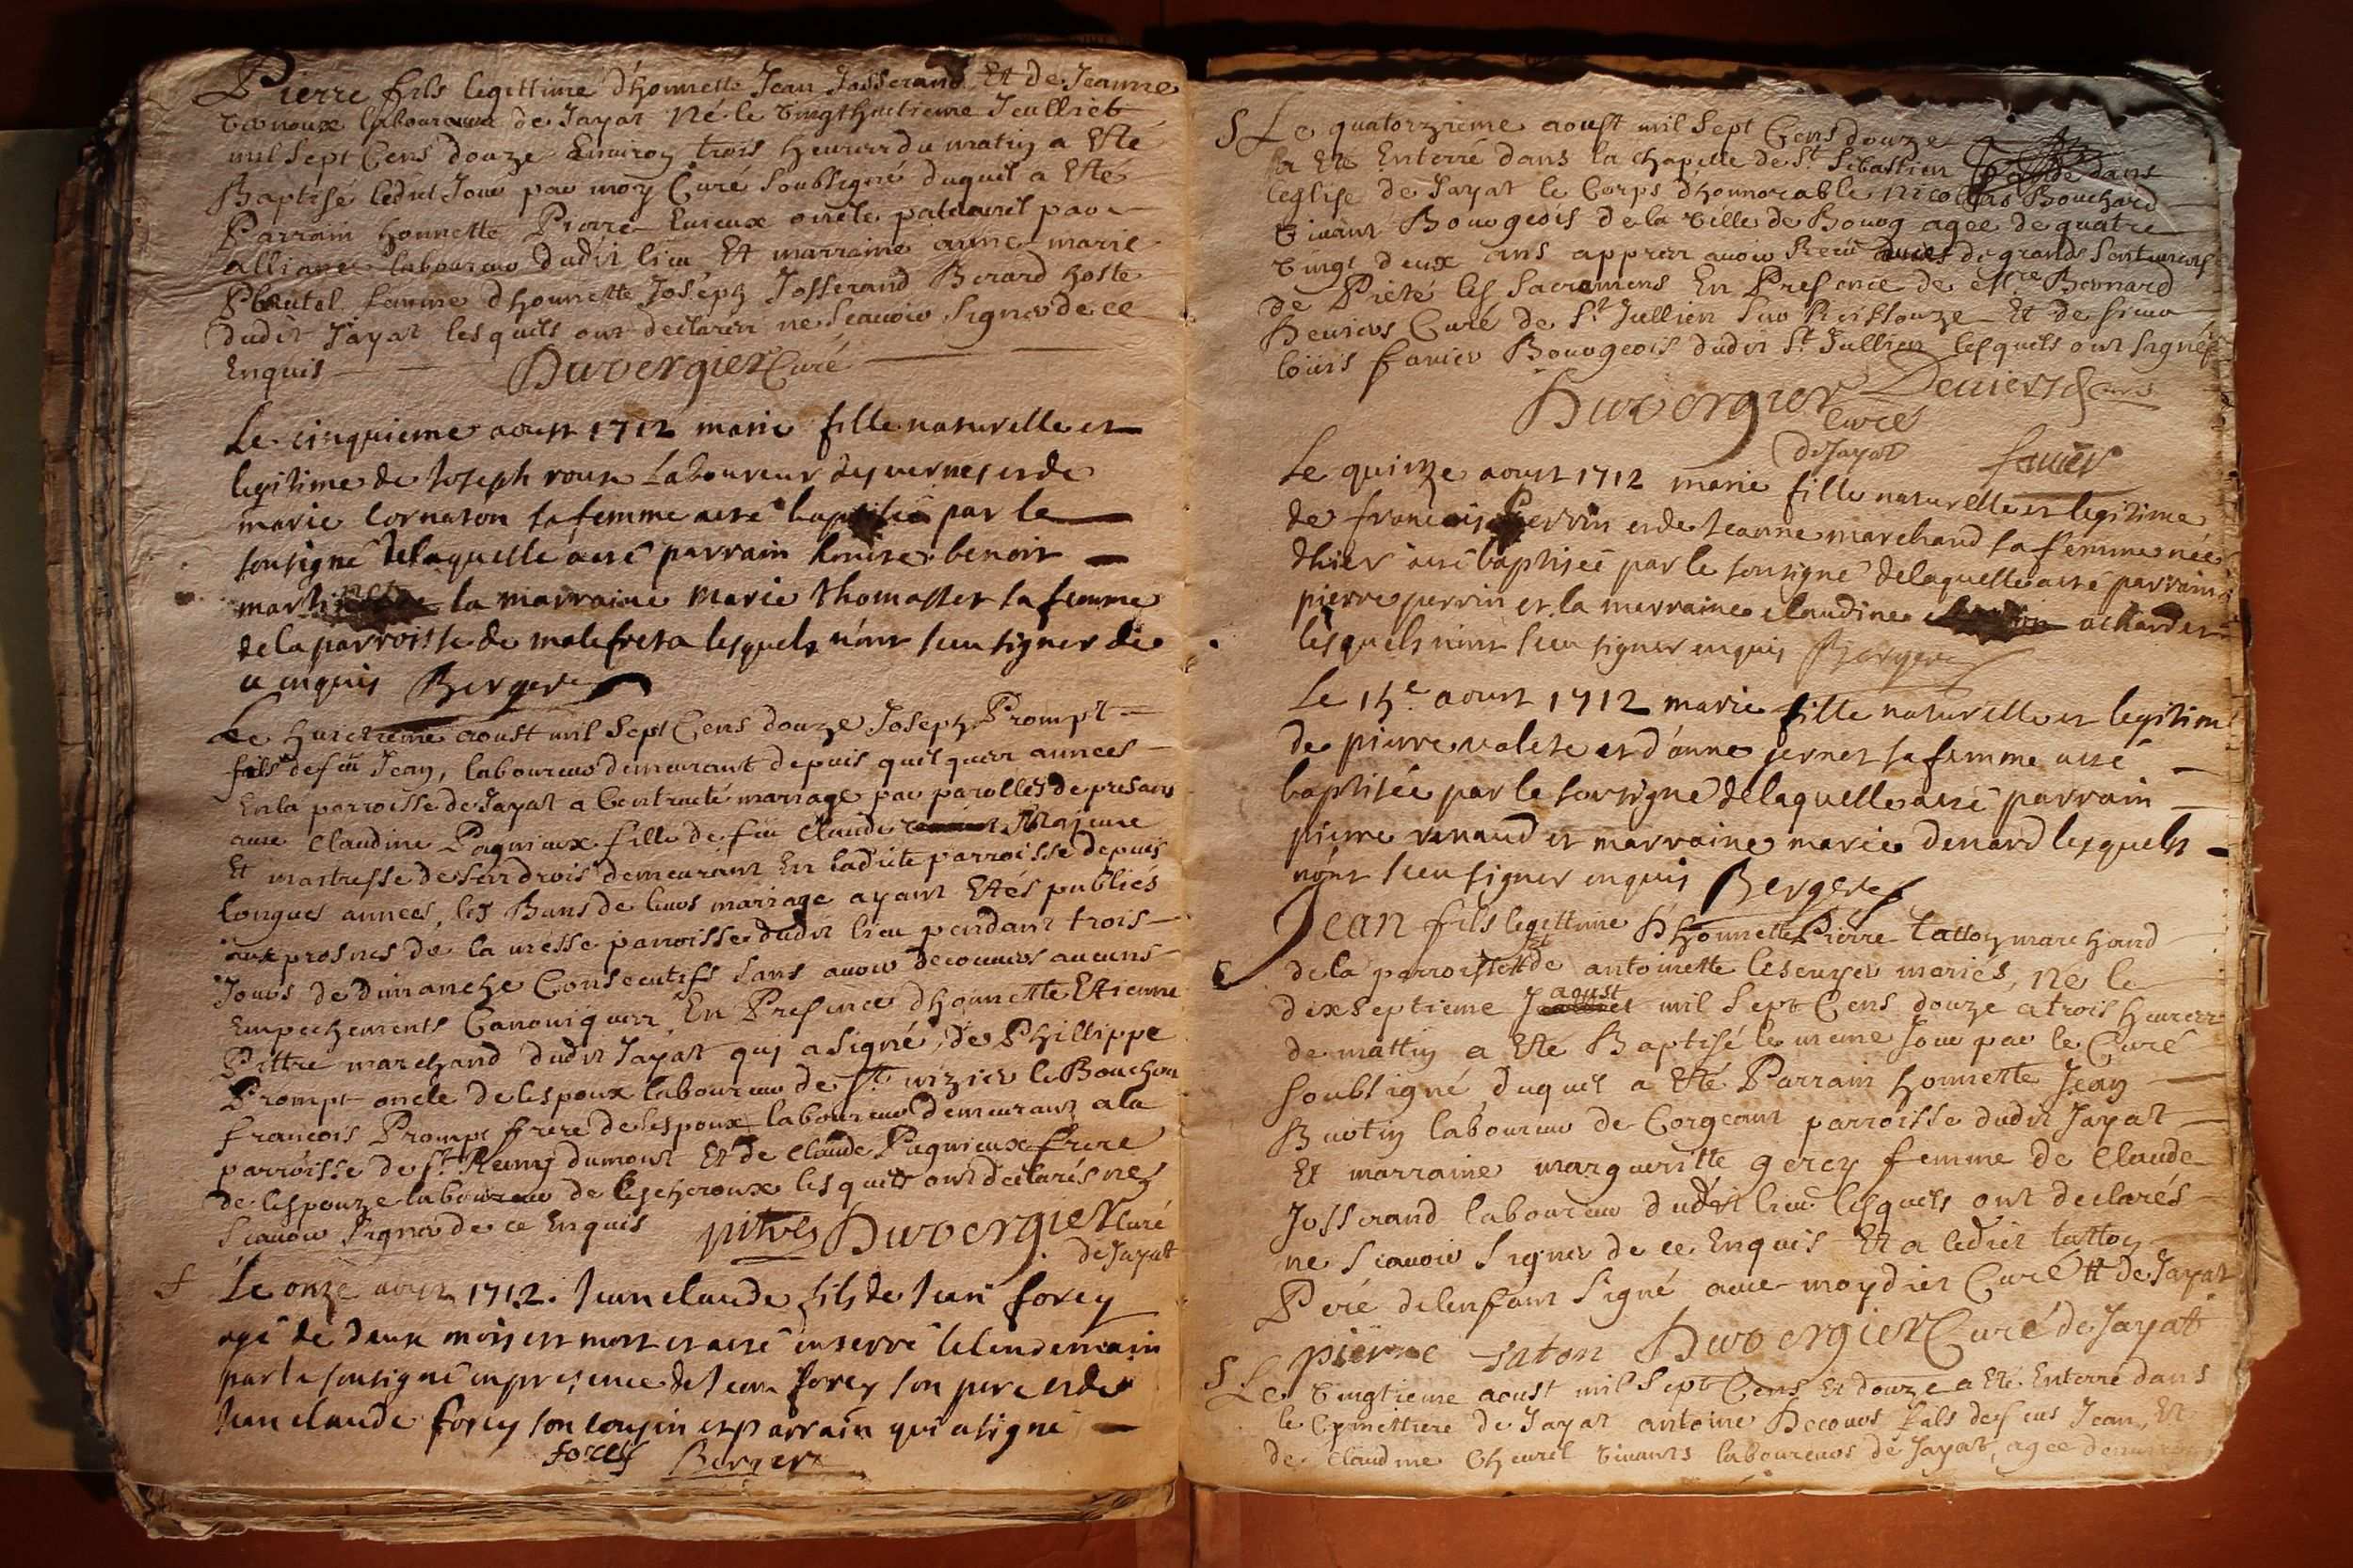 Pierre fils legittime d'honnette Jean Josserand Et de Jeanne
laboureur de Jayat Né le vingthuitieme Jeulliet
mil Sept Cens douze Environ trois heures du matin a Esté
Baptisé ledit Jour par moy Curé Soubsigné duquel a Esté
Parrain honnette Pierre oncle paternel par
alliance laboureur dudit lieu Et marraine anne marie
femme d'honnette Joseph Josserand Berard hoste
dudit Jayat lesquels ont declarer ne Scavoir Signer de ce
Enquis Duvergier Curé
Le cinquieme aoust 1712 marie fille naturelle et
legitime de Joseph roux Laboureur des vernes et de
marie Cornaton sa femme a esté baptisée par le
sousigné de laquelle a esté parrain benoit
la marraine Marie thomasset sa femme
de la parroisse de malefreta lesquels n'ont sceu signer de
ce enquis Berger
Le huictieme aoust mil Sept Cens douze Joseph Prompt
fils de fû Jean, laboureur demeurant depuis quelques annees
En la parroisse de Jayat a Contracté mariage par parolles de presans
avec Claudine Paquieux fille de fû Claude Majeure
Et maitresse de Ses drois demeurant En ladite parroisse depuis
longues annees, les Bans de leurs mariage ayant Estés publiés
aux prosnes de la messe parroisse dudit lieu pendant trois
Jours de dimanche Consecutifs Sans avoir decouvers aucuns
Empechements Canoniques En Presence d'honnette Etienne
Pittre marchand dudit Jayat qui a Signé, de Phillippe
Prompt oncle de lespoux laboureur de St. le Bouchou
francois Prompt frere de lespoux laboureur demeurant a la
parroisse de St. Remy dumont Et de Claude Paquieux frere
de lespouze laboureur de lescheroux lesquels ont declarés ne
Scavoir Signer de ce Enquis pitres Duvergier Curé
de Jayat
f Le onze aoust 1712. Jean claude fils de Jean forey
agé de deux mois est mort et a esté enterré le lendemain
par le sousigné en presence de Jean forey son pere et de
Jean claude forey son cousin et parrain qui a signé
forey Berger
S Le quatorzieme aoust mil Sept Cens douze
a Eté Enterré dans la chapelle de St. Sebastien dans
leglise de Jayat le Corps d'honnorable Nicollas Bouchard
vivant Bourgeois de la ville de Bourg agee de quatre
vingt deux ans appres avoir Receu avec de grands Sentimens
de Pieté les Sacremens En Presence de Mre Bernard
Curé de St. Jullien Sur Reissouze Et de Sieur
louis favier Bourgeois dudit St. Jullien lesquels ont signés
Duvergier Curé
de Jayat favier
Le quinze aoust 1712 marie fille naturelle et legitime
de francois perrin et de Jeanne marchand sa femme née
dhier a esté baptisée par le sousigné de laquelle a esté parrain
pierre perrin et la marraine claudine achard et
lesquels n'ont sceu signer enquis Berger
Le 15e. aoust 1712 marie fille naturelle et legitime
de pierre et d'anne sa femme a esté
baptisée par le sousigné de laquelle a esté parrain
pierre renaud et marraine marie denard lesquels
n'ont sceu signer enquis Berger
Jean fils legittime d'honnette Pierre tatton marchand
de la parroisse Et de antoinette mariés, Né le
dixseptieme aoust mil Sept Cens douze a trois heures
de mattin a Esté Baptisé le meme Jour par le Curé
Soubsigné duquel a Esté Parrain honnette Jean
Buotin laboureur de Corgeant parroisse dudit Jayat
Et marraine margueritte gercy femme de Claude
Josserand laboureur dudit lieu lesquels ont declarés
ne Scavoir Signer de ce Enquis Et a ledit tatton
Peré de lenfant Signé avec moydit Curé de Jayat
pierre taton Duvergier Curé de Jayat
S Le vingtieme aoust mil Sept Cens Et douze a Eté Enterré dans
le Cymettiere de Jayat antoine Decours fils de feus Jean, Et
de Claudine vivants laboureurs de Jayat, agee